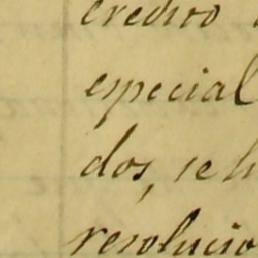 credito
especial
dos, se h
resolucio